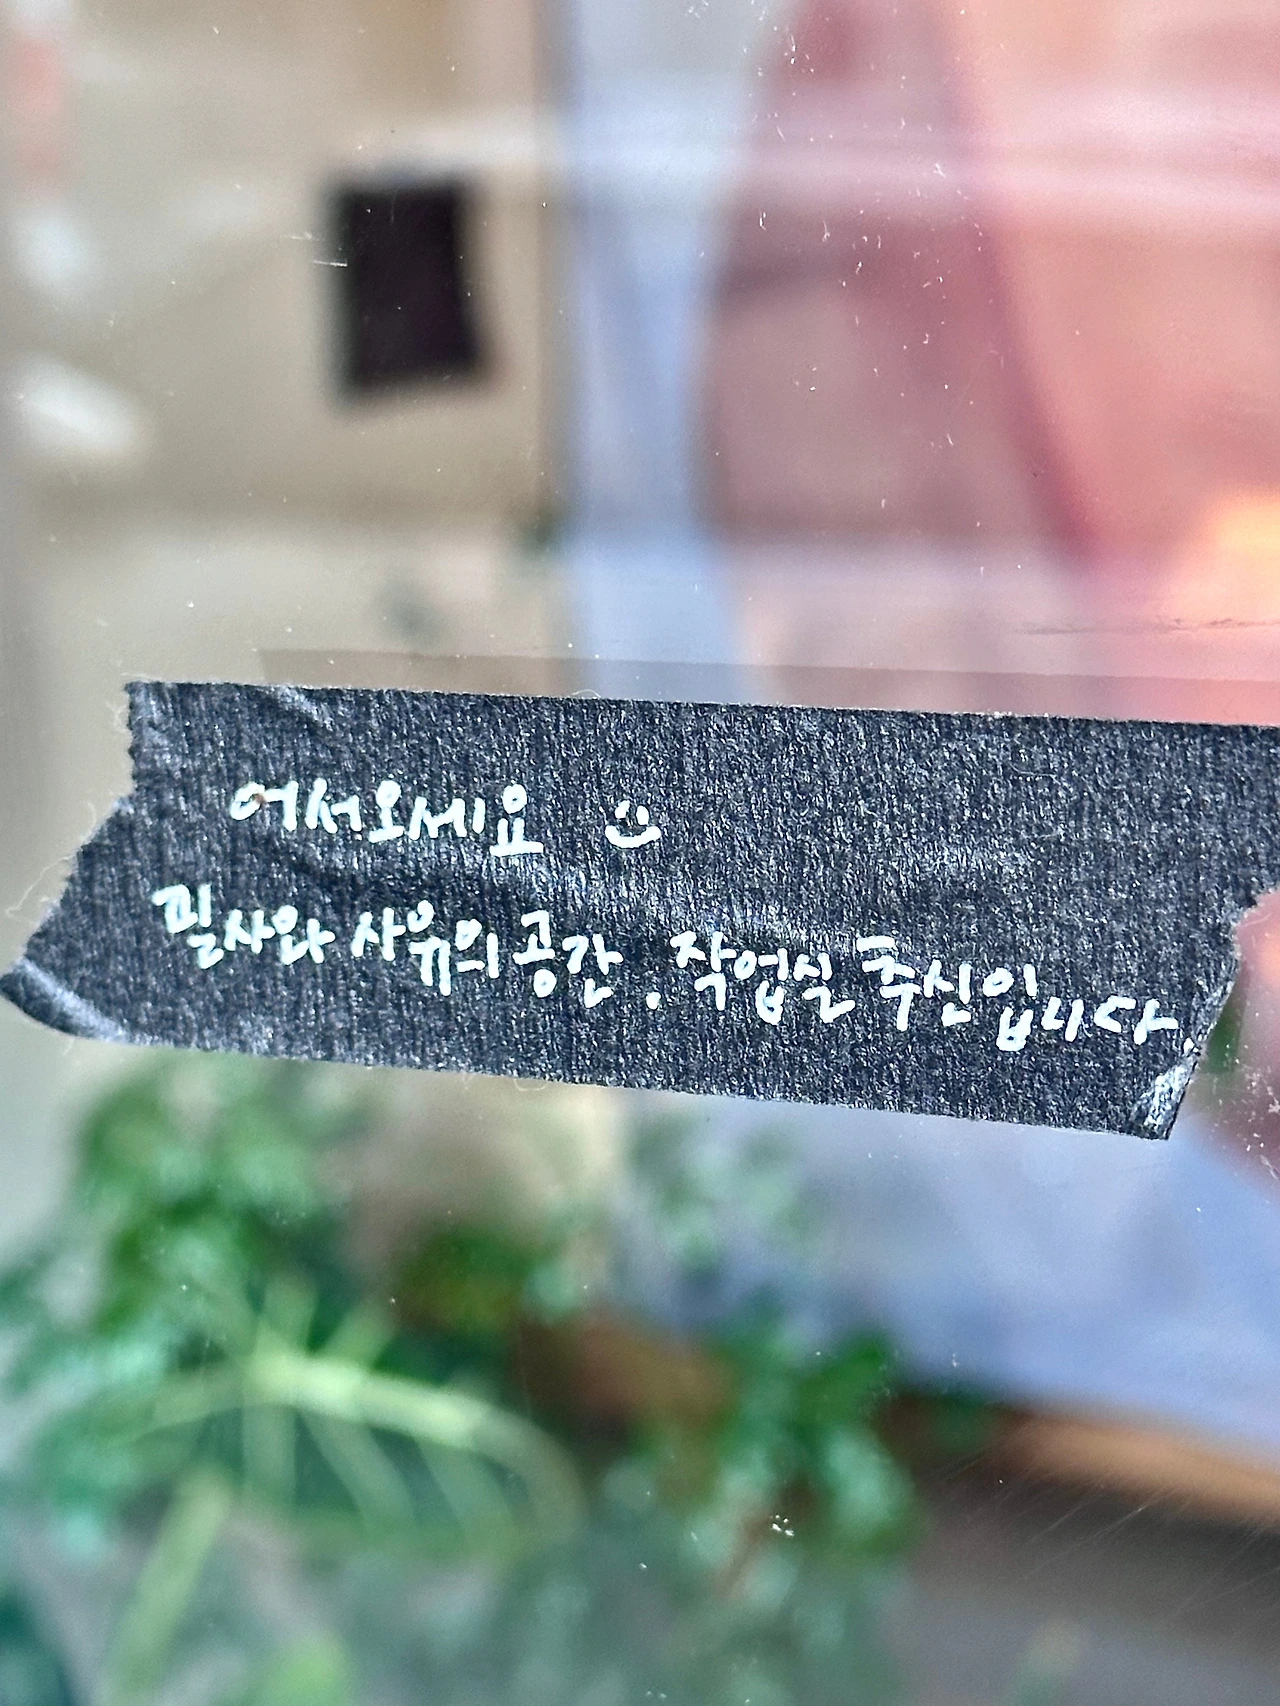 어서오세요
필사와 사유의 공간. 작업실 주신입니다.